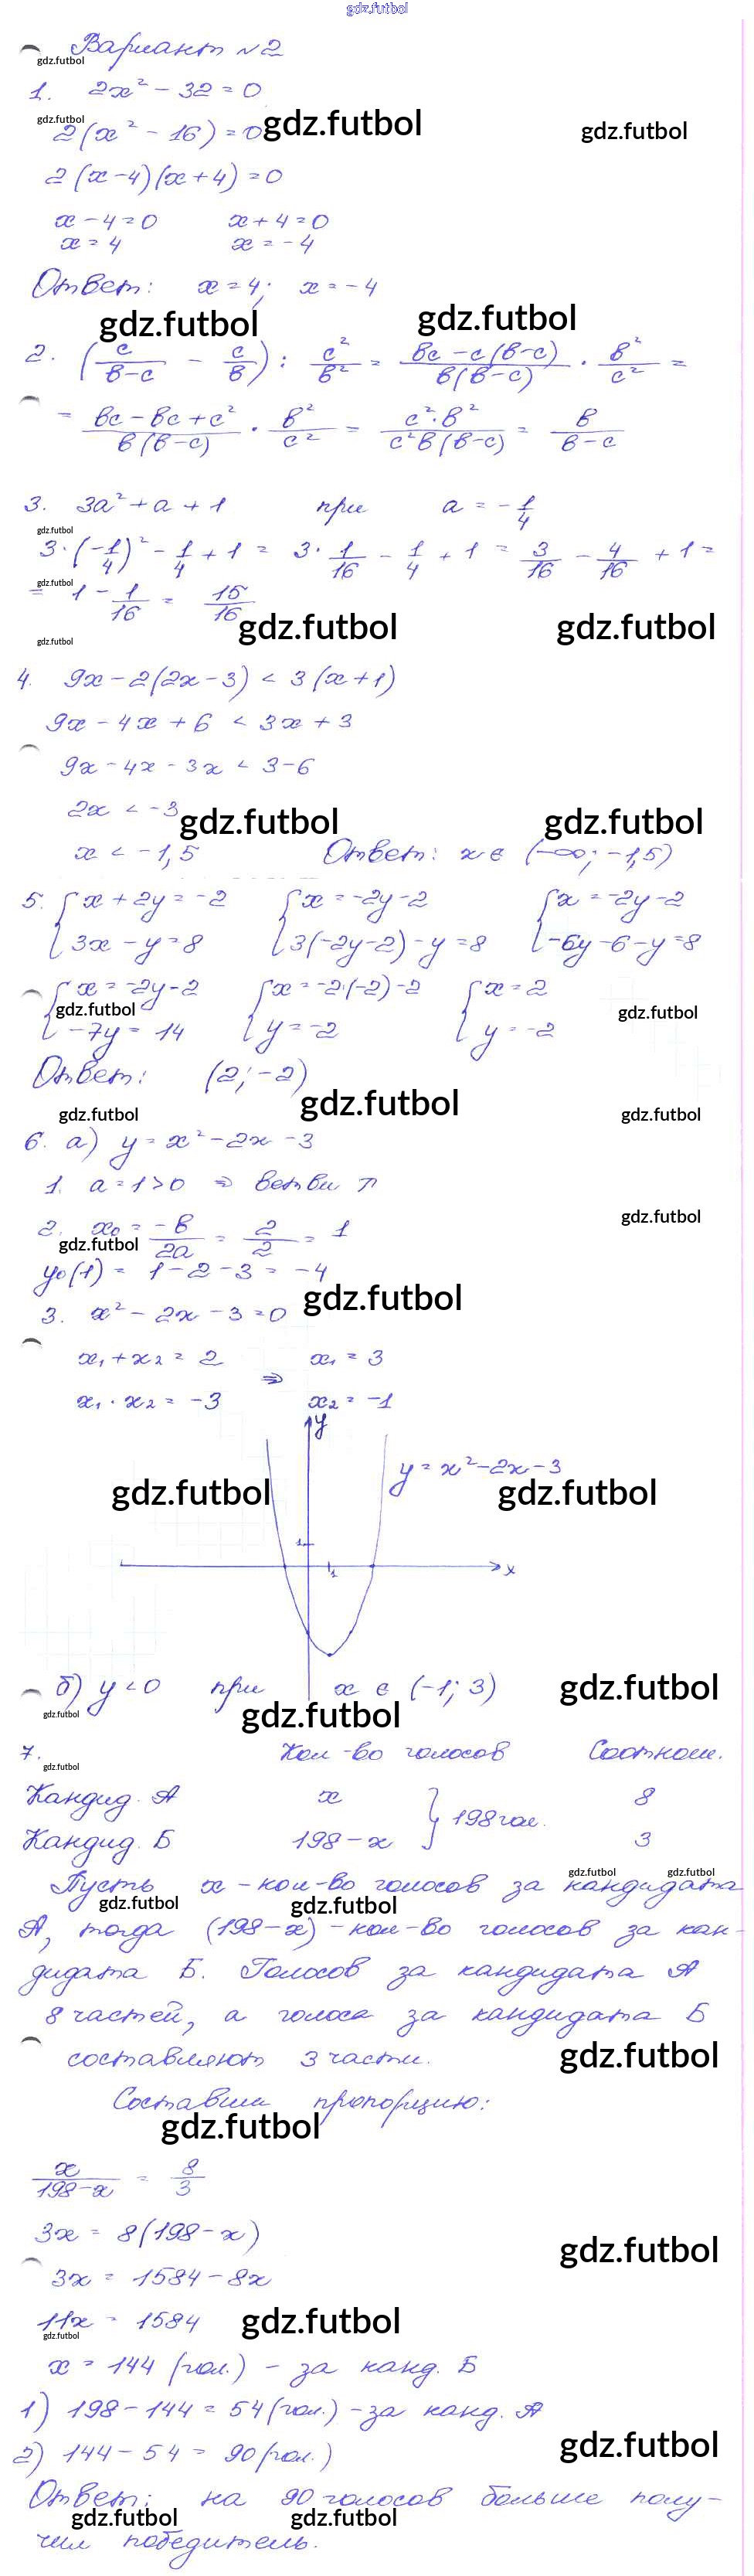 gdz.futbol
Вариант №2
gdz.futbol
1. 2x² - 32 = 0
gdz.futbol
2(x² - 16) = 0 gdz.futbol gdz.futbol
2(x-4)(x+4) = 0
x - 4 = 0 x + 4 = 0
x = 4 x = -4
Ответ: x = 4; x = -4
gdz.futbol gdz.futbol
2. (c/(в-c) - c/в) : c²/в² = (вc - c(в-c))/(в(в-c)) · в²/c² =
= (вc - вc + c²)/(в(в-c)) · в²/c² = (c²·в²)/(c²в(в-c)) = в/(в-c)
3. 3a² + a + 1 при a = -1/4
gdz.futbol
3·(-1/4)² - 1/4 + 1 = 3·1/16 - 1/4 + 1 = 3/16 - 4/16 + 1 =
gdz.futbol
= 1 - 1/16 = 15/16
gdz.futbol gdz.futbol
gdz.futbol
4. 9x - 2(2x-3) < 3(x+1)
9x - 4x + 6 < 3x + 3
9x - 4x - 3x < 3 - 6
2x < -3
gdz.futbol gdz.futbol
x < -1,5 Ответ: x ∈ (-∞; -1,5)
5. { x + 2y = -2 { x = -2y-2 { x = -2y-2
{ 3x - y = 8 { 3(-2y-2) - y = 8 { -6y-6-y=8
{ x = -2y-2 { x = -2·(-2)-2 { x = 2
gdz.futbol gdz.futbol
{ -7y = 14 { y = -2 { y = -2
Ответ: (2; -2)
gdz.futbol
gdz.futbol gdz.futbol
6. а) y = x² - 2x - 3
1. a = 1 > 0 ⇒ ветви ↑
gdz.futbol
2. x₀ = -в/2a = 2/2 = 1
gdz.futbol
y₀(1) = 1 - 2 - 3 = -4
gdz.futbol
3. x² - 2x - 3 = 0
x₁ + x₂ = 2 ⇒ x₁ = 3
x₁ · x₂ = -3 x₂ = -1
y
y = x² - 2x - 3
gdz.futbol gdz.futbol
1
1 x
б) y < 0 при x ∈ (-1; 3) gdz.futbol
gdz.futbol gdz.futbol
7. Кол-во голосов Соотнош.
gdz.futbol
Кандид. А x } 198 гол. 8
Кандид. Б 198 - x 3
gdz.futbol gdz.futbol
Пусть x - кол-во голосов за кандидата
gdz.futbol gdz.futbol
А, тогда (198-x) - кол-во голосов за кан-
дидата Б. Голосов за кандидата А
8 частей, а голоса за кандидата Б
gdz.futbol
составляют 3 части.
Составим пропорцию:
gdz.futbol
x/(198-x) = 8/3
3x = 8(198-x)
gdz.futbol
3x = 1584 - 8x
11x = 1584 gdz.futbol
gdz.futbol
x = 144 (гол.) - за канд. Б
1) 198 - 144 = 54 (гол.) - за канд. А
2) 144 - 54 = 90 (гол.) gdz.futbol
Ответ: на 90 голосов больше полу-
gdz.futbol gdz.futbol
чил победитель.